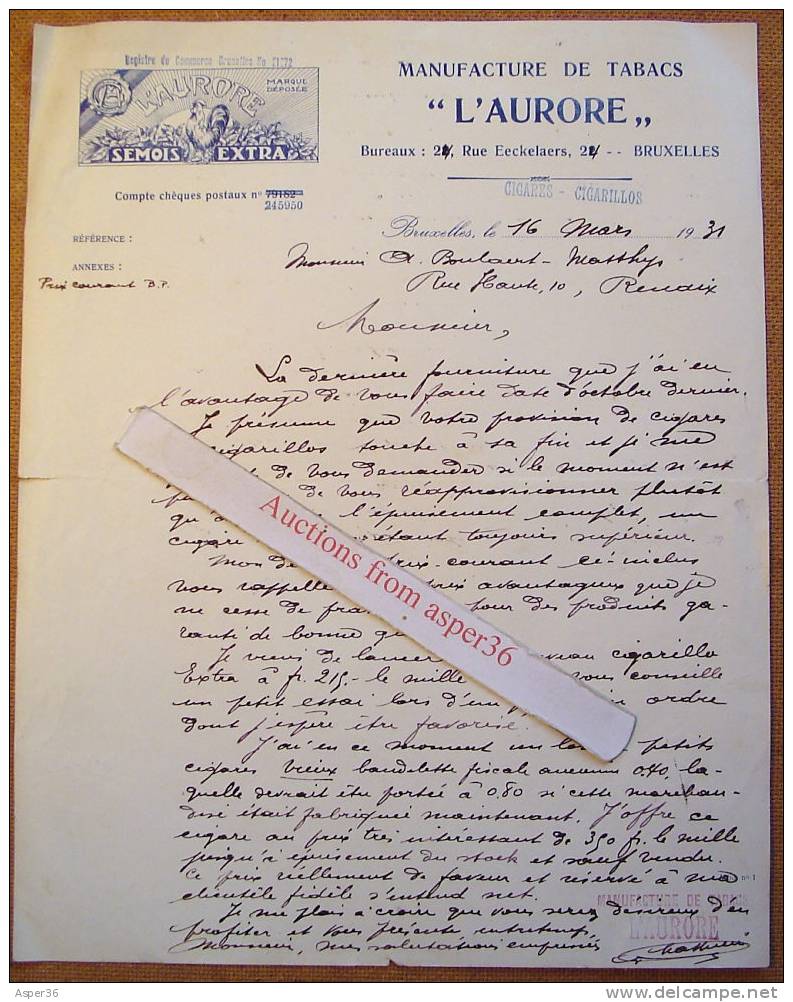 Registre du Commerce Bruxelles No
L'AURORE
MARQUE
DÉPOSÉE
SEMOIS EXTRA
MANUFACTURE DE TABACS
"L'AURORE„
Bureaux : 24, Rue Eeckelaers, 24 -- BRUXELLES
CIGARES - CIGARILLOS
Compte chèques postaux n° 79182
245950
Bruxelles, le 16 Mars 1931
RÉFÉRENCE :
ANNEXES :
Prix courant B.P.
Monsieur A. Boulaert-Matthys
Rue Haute, 10, Renaix
Monsieur,
La dernière fourniture que j'ai eu
l'avantage de vous faire date d'octobre dernier.
Je présume que votre provision de cigares
cigarillos touche à sa fin et je me
de vous demander si le moment n'est
de vous réapprovisionner plutôt
qu'à l'épuisement complet, un
cigare étant toujours supérieur.
Mon de prix-courant ci-inclus
vous rappelle prix avantageux que je
ne cesse de pour des produits ga-
rantis de bonne
Je viens de lancer cigarillo
Extra à fr. 215.- le mille vous conseille
un petit essai lors d'un ordre
dont j'espère être favorisé.
J'ai en ce moment un petits
cigares vieux bandelette fiscale ancienne 0.40, la-
quelle devrait être portée à 0.80 si cette marchan-
dise était fabriquée maintenant. J'offre ce
cigare au prix très intéressant de 350 fr. le mille
jusqu'à épuisement du stock et sauf vendu.
Ce prix réellement de faveur et réservé à ma
clientèle fidèle s'entend net.
Je me plais à croire que vous serez désireux d'en
profiter et vous présente, entretemps,
Monsieur, mes salutations empressées
n° 1
MANUFACTURE DE TABACS
L'AURORE
Auctions from asper36
Asper36
www.delcampe.net